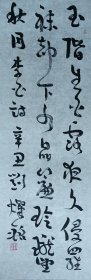 玉階生白露夜久侵羅
襪却下水晶簾玲瓏望
秋月李白詩辛丑劉